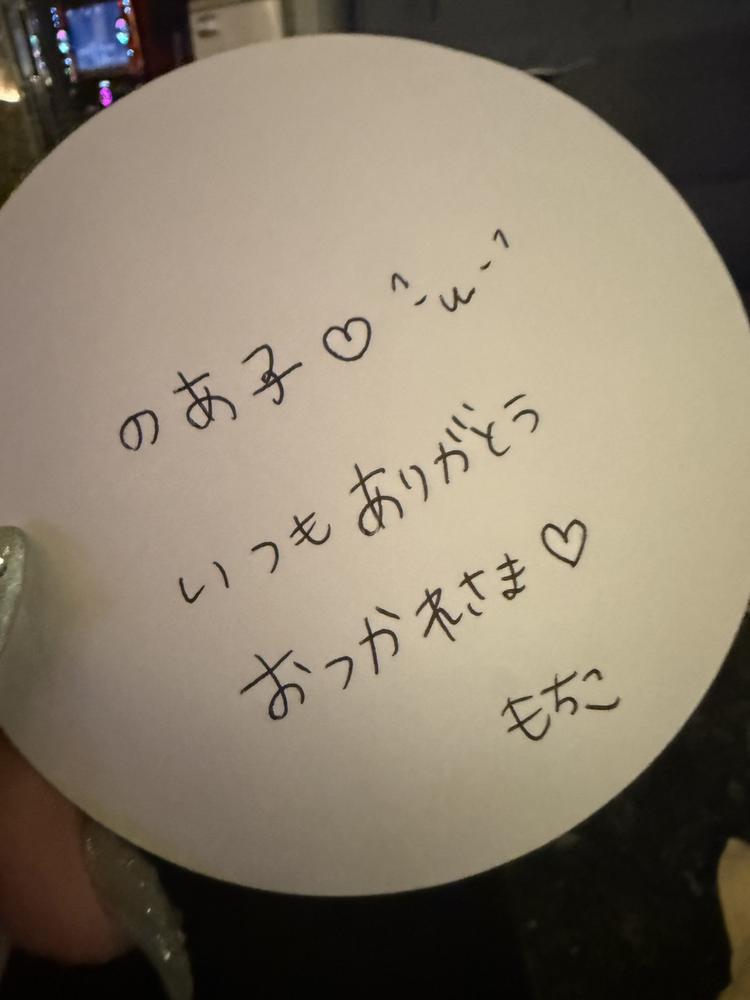 のあ子♡ ^-u-^
いつもありがとう
おっかれさま♡
もちこ